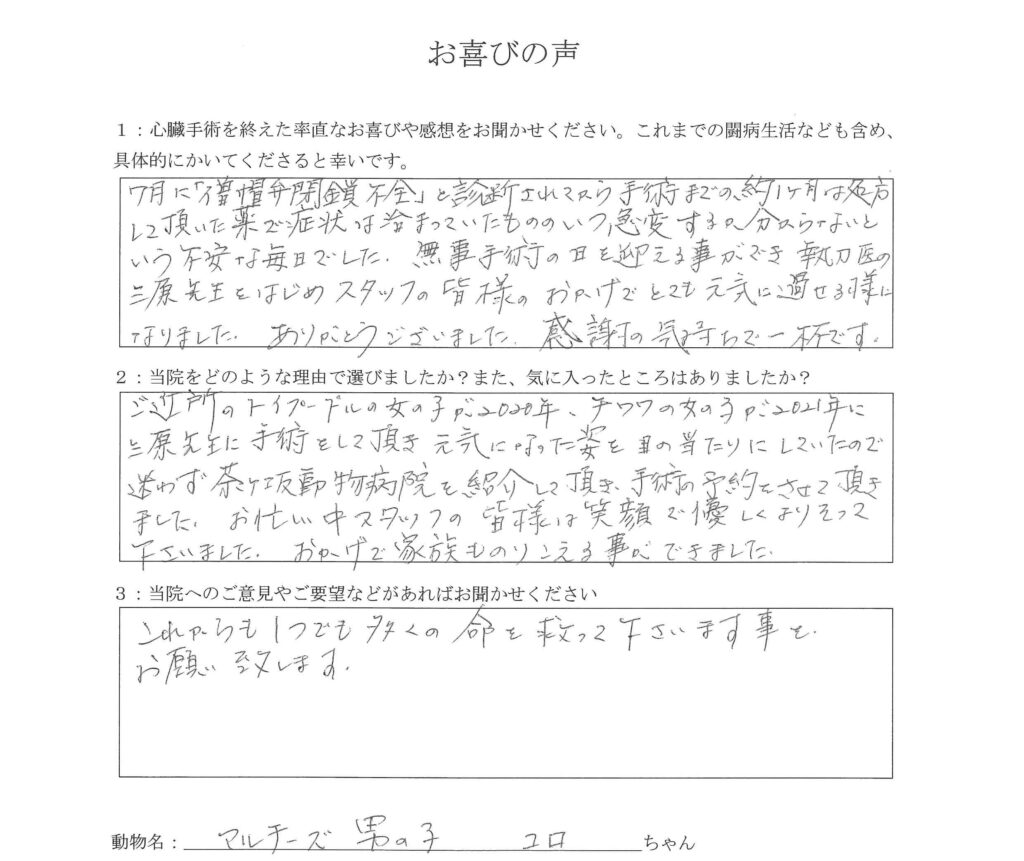 お喜びの声
1：心臓手術を終えた率直なお喜びや感想をお聞かせください。これまでの闘病生活なども含め、
具体的にかいてくださると幸いです。
7月に「僧帽弁閉鎖不全」と診断されてから手術までの、約1ヶ月は処方
して頂いた薬で症状は治まっていたもののいつ急変するか分からないと
いう不安な毎日でした。無事手術の日を迎える事ができ執刀医の
三原先生をはじめスタッフの皆様のおかげでとても元気に過せる様に
なりました。ありがとうございました。感謝の気持ちで一杯です。
2：当院をどのような理由で選びましたか？また、気に入ったところはありましたか？
ご近所のトイプードルの女の子が2020年、チワワの女の子が2021年に
三原先生に手術をして頂き元気になった姿を目の当たりにしていたので
迷わず茶ヶ坂動物病院を紹介して頂き、手術の予約をさせて頂き
ました。お忙い中スタッフの皆様は笑顔で優しくよりそって
下さいました。おかげで家族ものりこえる事ができました。
3：当院へのご意見やご要望などがあればお聞かせください
これからも1つでも多くの命を救って下さいます事を、
お願い致します。
動物名：マルチーズ 男の子 コロ ちゃん